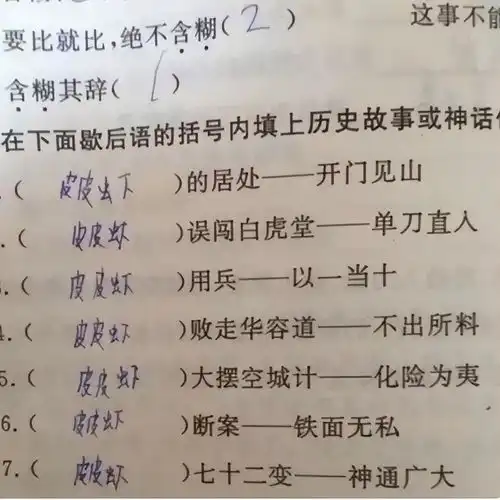 要比就比,绝不含糊( 2 )
这事不能
含糊其辞( 1 )
在下面歇后语的括号内填上历史故事或神话
.( 皮皮虾 )的居处——开门见山
.( 皮皮虾 )误闯白虎堂——单刀直入
3.( 皮皮虾 )用兵——以一当十
4.( 皮皮虾 )败走华容道——不出所料
5.( 皮皮虾 )大摆空城计——化险为夷
6.( 皮皮虾 )断案——铁面无私
7.( 皮皮虾 )七十二变——神通广大